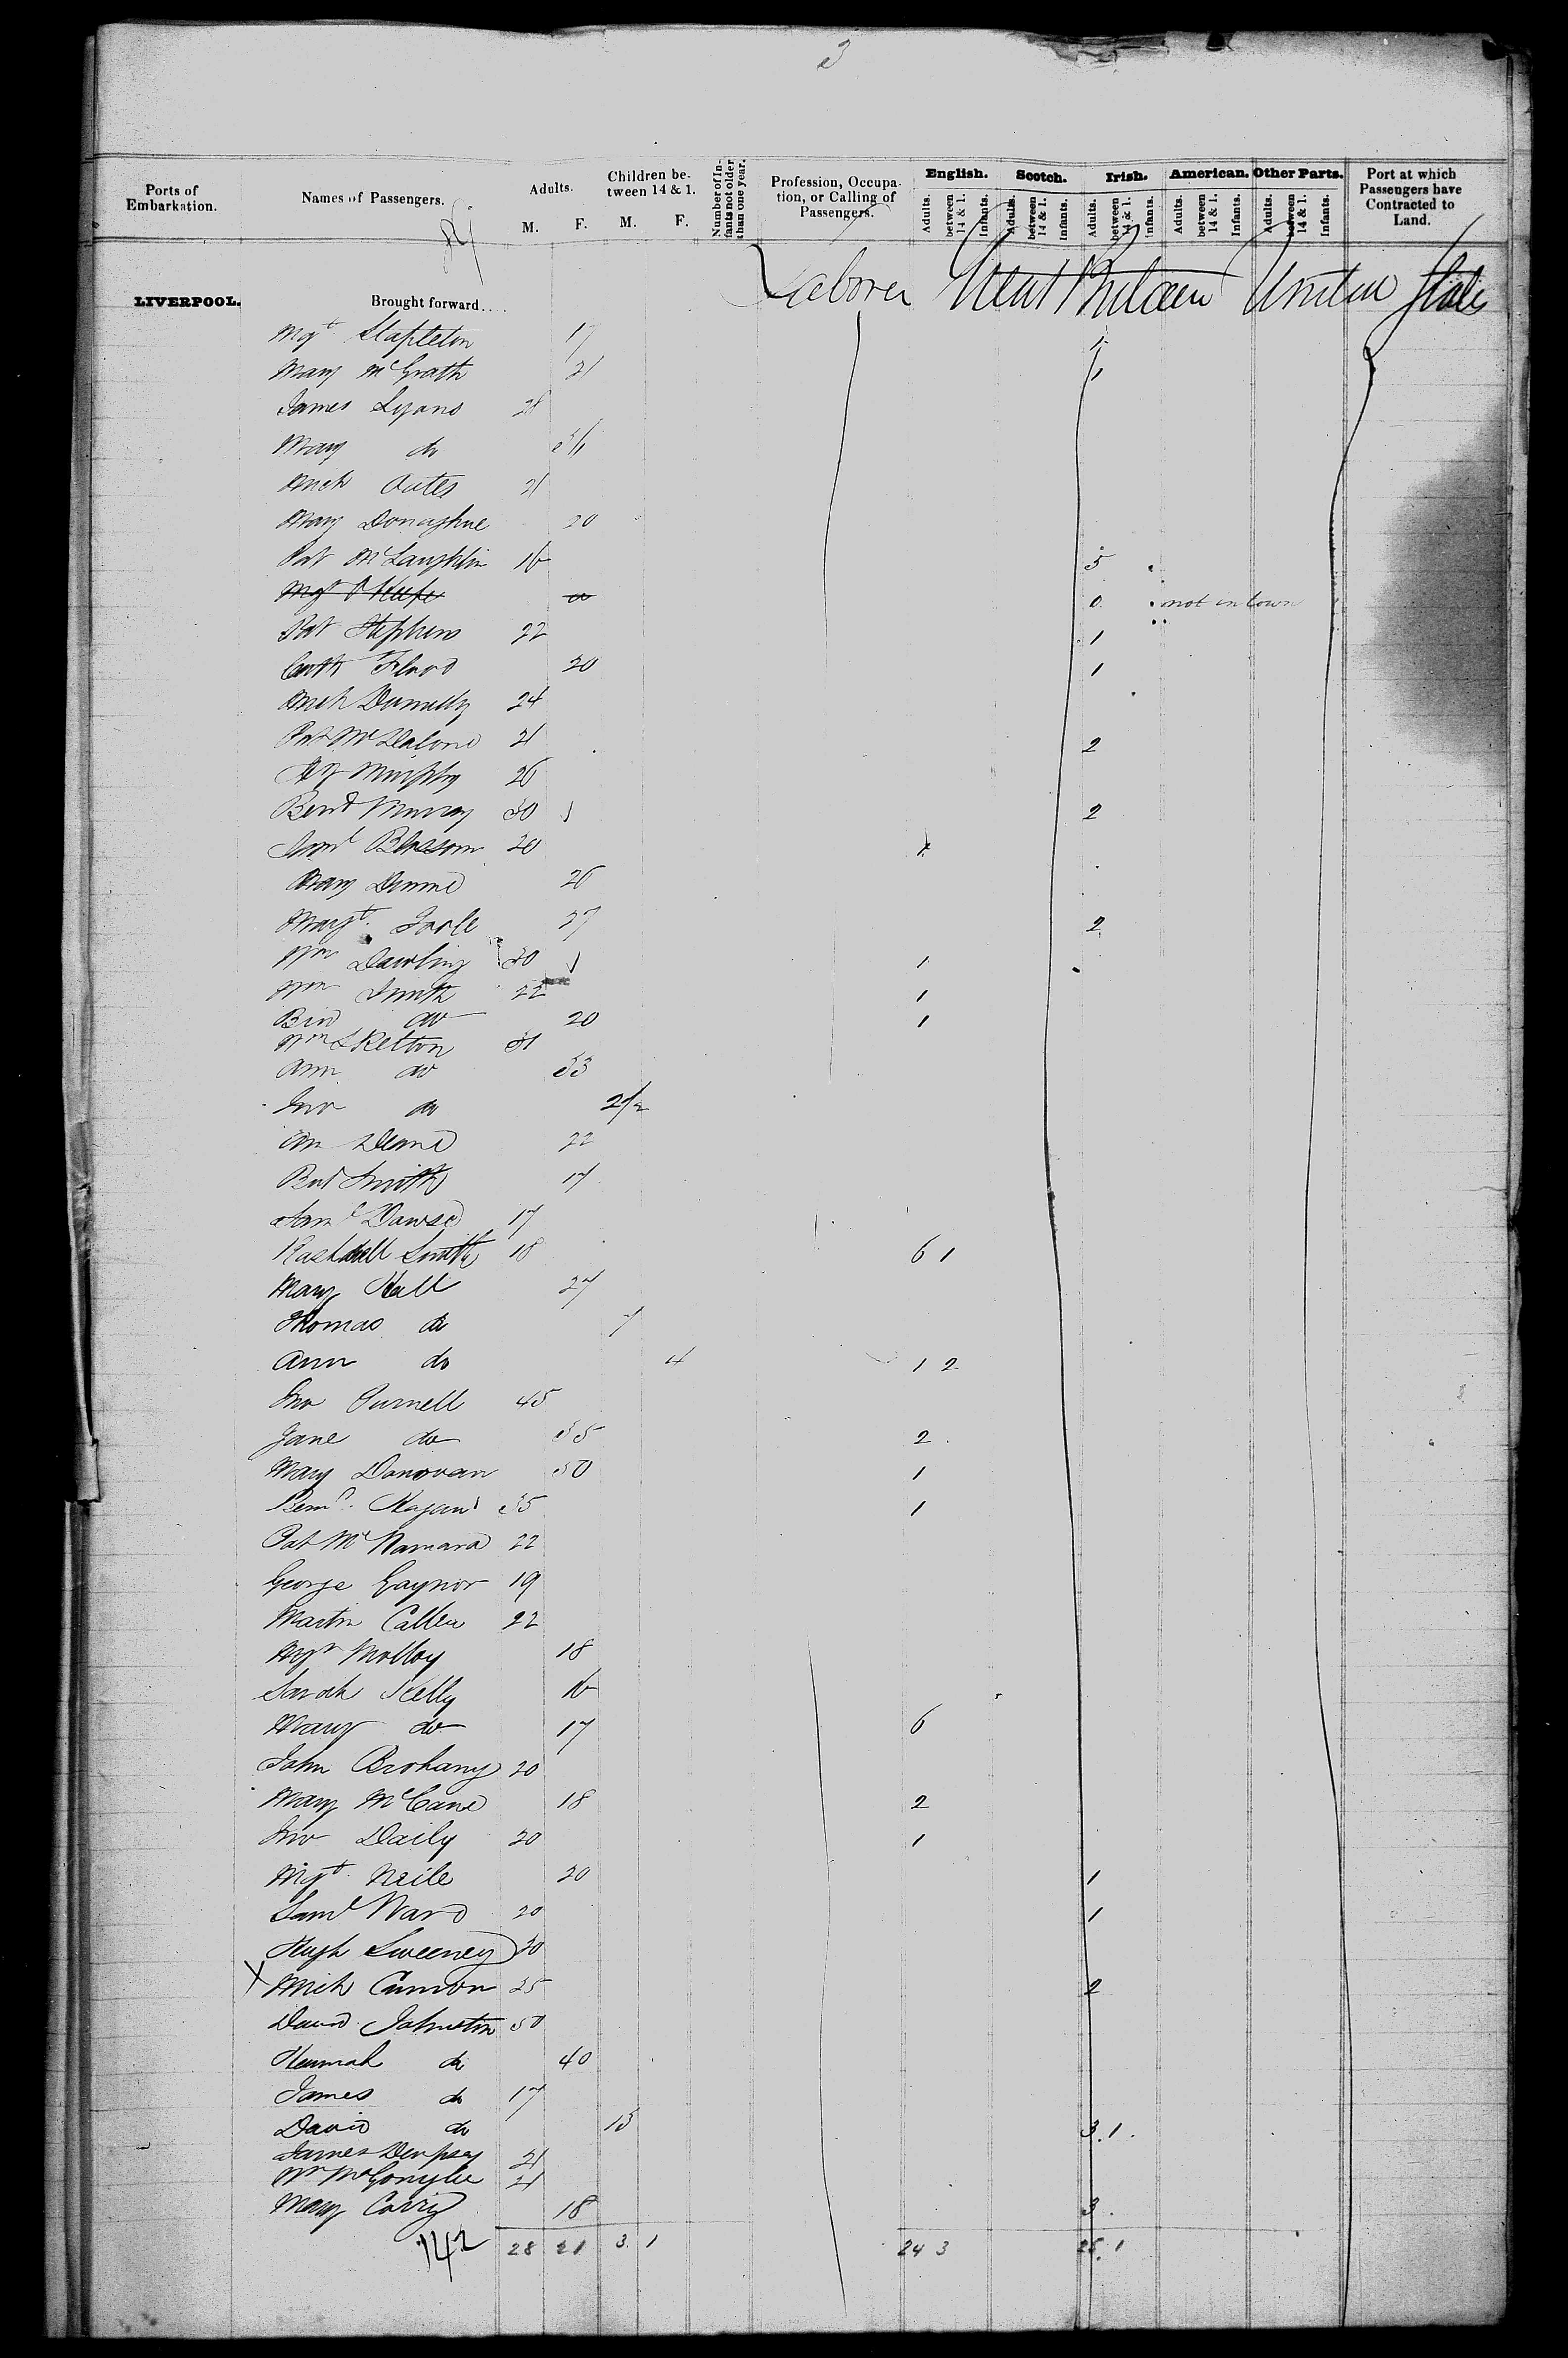 3
Ports of Embarkation. Names of Passengers. Adults. M. F. Children between 14 & 1. M. F. Number of Infants not older than one year. Profession, Occupation, or Calling of Passengers. English. Adults. between 14 & 1. Infants. Scotch. Adults. between 14 & 1. Infants. Irish. Adults. between 14 & 1. Infants. American. Adults. between 14 & 1. Infants. Other Parts. Adults. between 14 & 1. Infants. Port at which Passengers have Contracted to Land.
LIVERPOOL. Brought forward.... Laborer United States
Mgt Stapleton 17 1
Mary McGrath 21 1
James Lyons 28
Mary do
Mich Oates 21
Mary Donaghue 20
Pat McLaughlin 16 5
Mgt O'Keefe 0 not in town
Pat Stephens 22 1
Cath Flood 20 1
Mich Donnelly 24
Pat 21 2
Murphy 26
Bernd Murray 30 2
Blossom 20 1
Mary Dunne 26
Margt. 27 2
Wm Dawling 30 1
Wm Smith 22 1
Brid do 20 1
Wm Skelton 31
Ann do 33
Jno do 2½
An Deane 22
Smith 17
Saml Dawse 17
Smith 18 6 1
Mary Hall 27
Thomas do 7
Ann do 4 1 2
Jno Purnell 45
Jane do 35 2
Mary Donovan 50 1
Bernd. Hagan 35 1
Pat McNamara 22
George Gaynor 19
Martin 22
Mgt Molloy 18
Sarah Kelly 16
Mary do 17 6
John Brohany 20
Mary McCane 18 2
Jno Daily 20 1
Mgt Neile 20 1
Saml Ward 20 1
Hugh Sweeney 30
X Mich Cannon 25 2
David Johnston 50
Hannah do 40
James do 17
David do 13 3. 1.
James Dempsey 21
Wm McGonigle 21
Mary 18 3.
142 28 21 3 1 24 3 25. 1